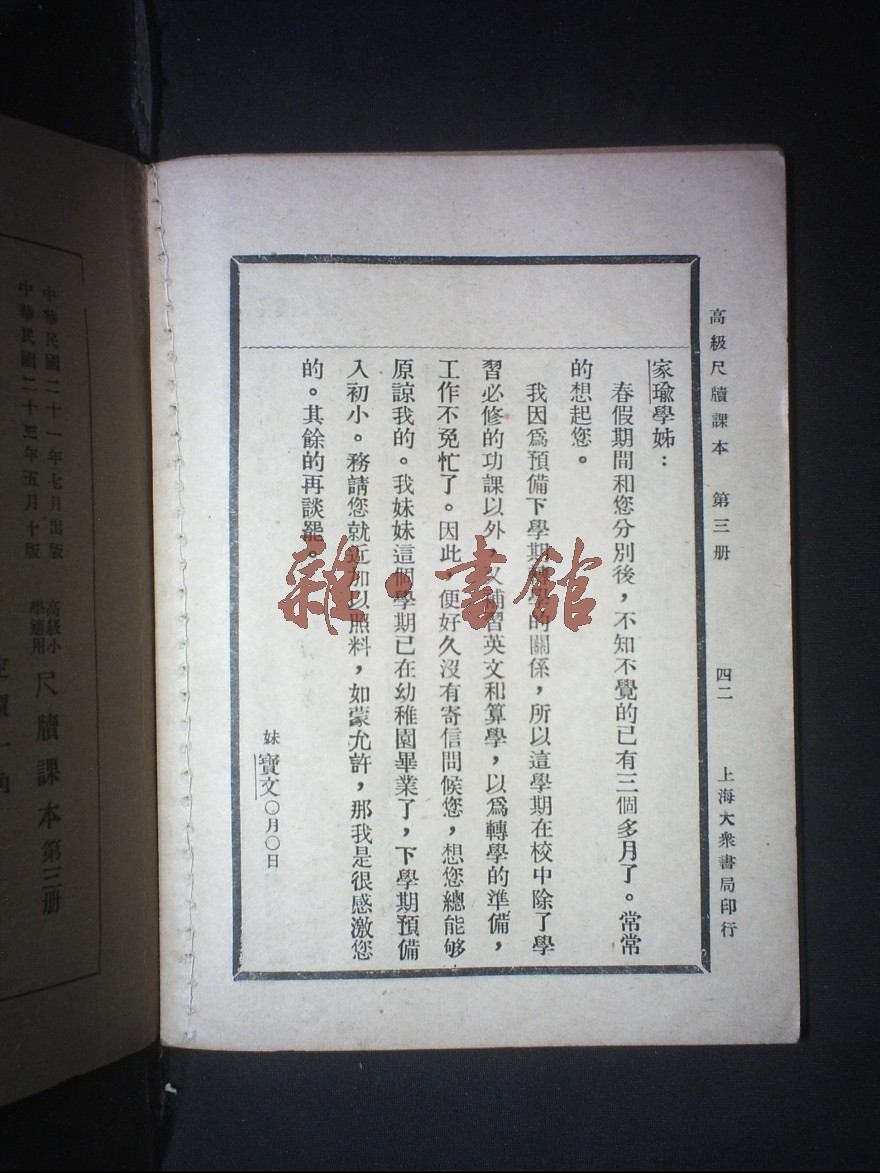 高級尺牘課本 第三册 四二 上海大衆書局印行
家瑜學姊：
春假期間和您分別後，不知不覺的已有三個多月了。常常
的想起您。
我因爲預備下學期學的關係，所以這學期在校中除了學
習必修的功課以外，又補習英文和算學，以爲轉學的準備，
工作不免忙了。因此，便好久沒有寄信問候您，想您總能够
原諒我的。我妹妹這個學期已在幼稚園畢業了，下學期預備
入初小。務請您就近加以照料，如蒙允許，那我是很感激您
的。其餘的再談罷。
妹寶文〇月〇日
雜·書館
高級小學適用 尺牘課本第三册
中華民國二十一年七月出版
中華民國二十三年五月十版